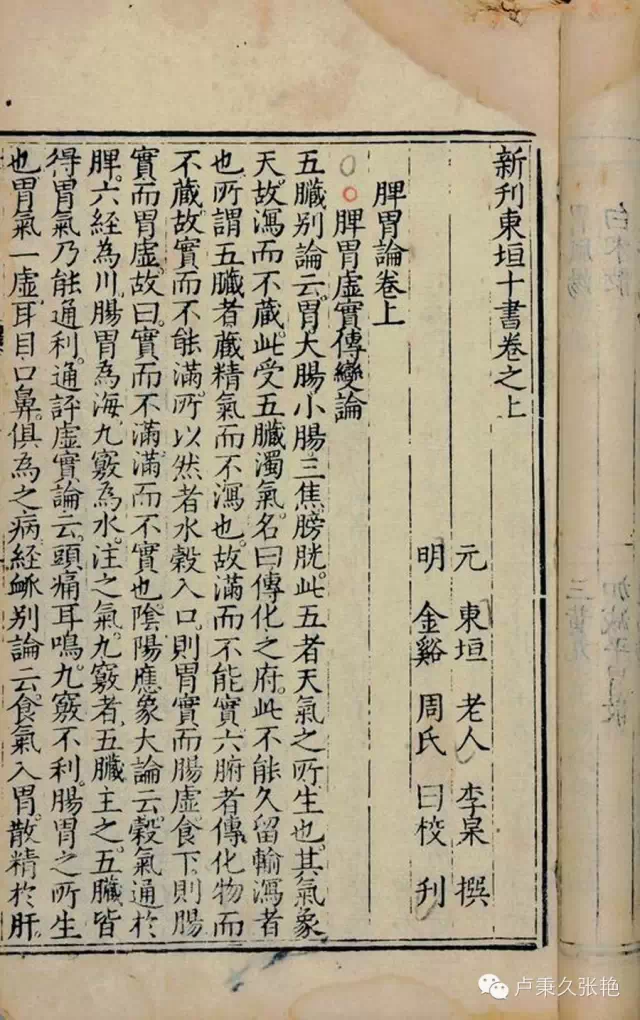 新刊東垣十書卷之上
元 東垣 老人 李杲 撰
明 金谿 周氏 曰校 刊
脾胃論卷上
脾胃虛實傳變論
五臟别論云。胃大腸小腸三焦膀胱。此五者天氣之所生也。其氣象
天。故瀉而不藏。此受五臟濁氣。名曰傳化之府。此不能久留輸瀉者
也。所謂五臟者。藏精氣而不瀉也。故滿而不能實。六腑者。傳化物而
不藏。故實而不能滿。所以然者。水穀入口。則胃實而腸虛。食下。則腸
實而胃虛。故曰。實而不滿。滿而不實也。陰陽應象大論云。穀氣通於
脾。六経為川。腸胃為海。九竅為水。注之氣。九竅者。五臟主之。五臟皆
得胃氣。乃能通利。通評虛實論云。頭痛耳鳴。九竅不利。腸胃之所生
也。胃氣一虛。耳目口鼻。俱為之病。経䘑别論云。食氣入胃。散精於肝。
卢秉久张艳